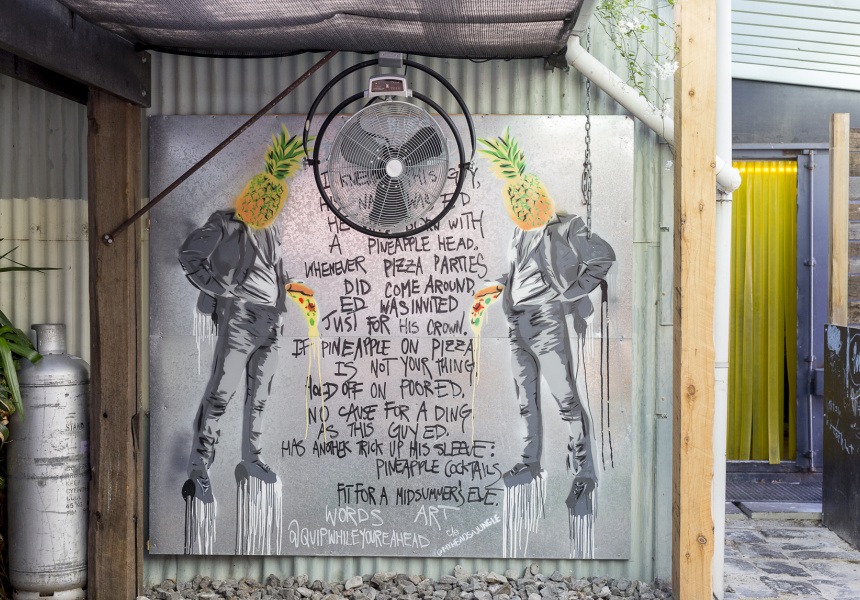 I KNEW HIS GUY,
NA WA ED
HE BORN WITH
A PINEAPPLE HEAD.
WHENEVER PIZZA PARTIES
DID COME AROUND,
ED WAS INVITED
JUST FOR HIS CROWN.
IF PINEAPPLE ON PIZZA
IS NOT YOUR THING
HOLD OFF ON POOR ED,
NO CAUSE FOR A DING
AS THIS GUY ED.
HAS ANOTHER TRICK UP HIS SLEEVE:
PINEAPPLE COCKTAILS,
FIT FOR A MIDSUMMER'S EVE.
WORDS ART
@QUIPWHILEYOUREAHEAD